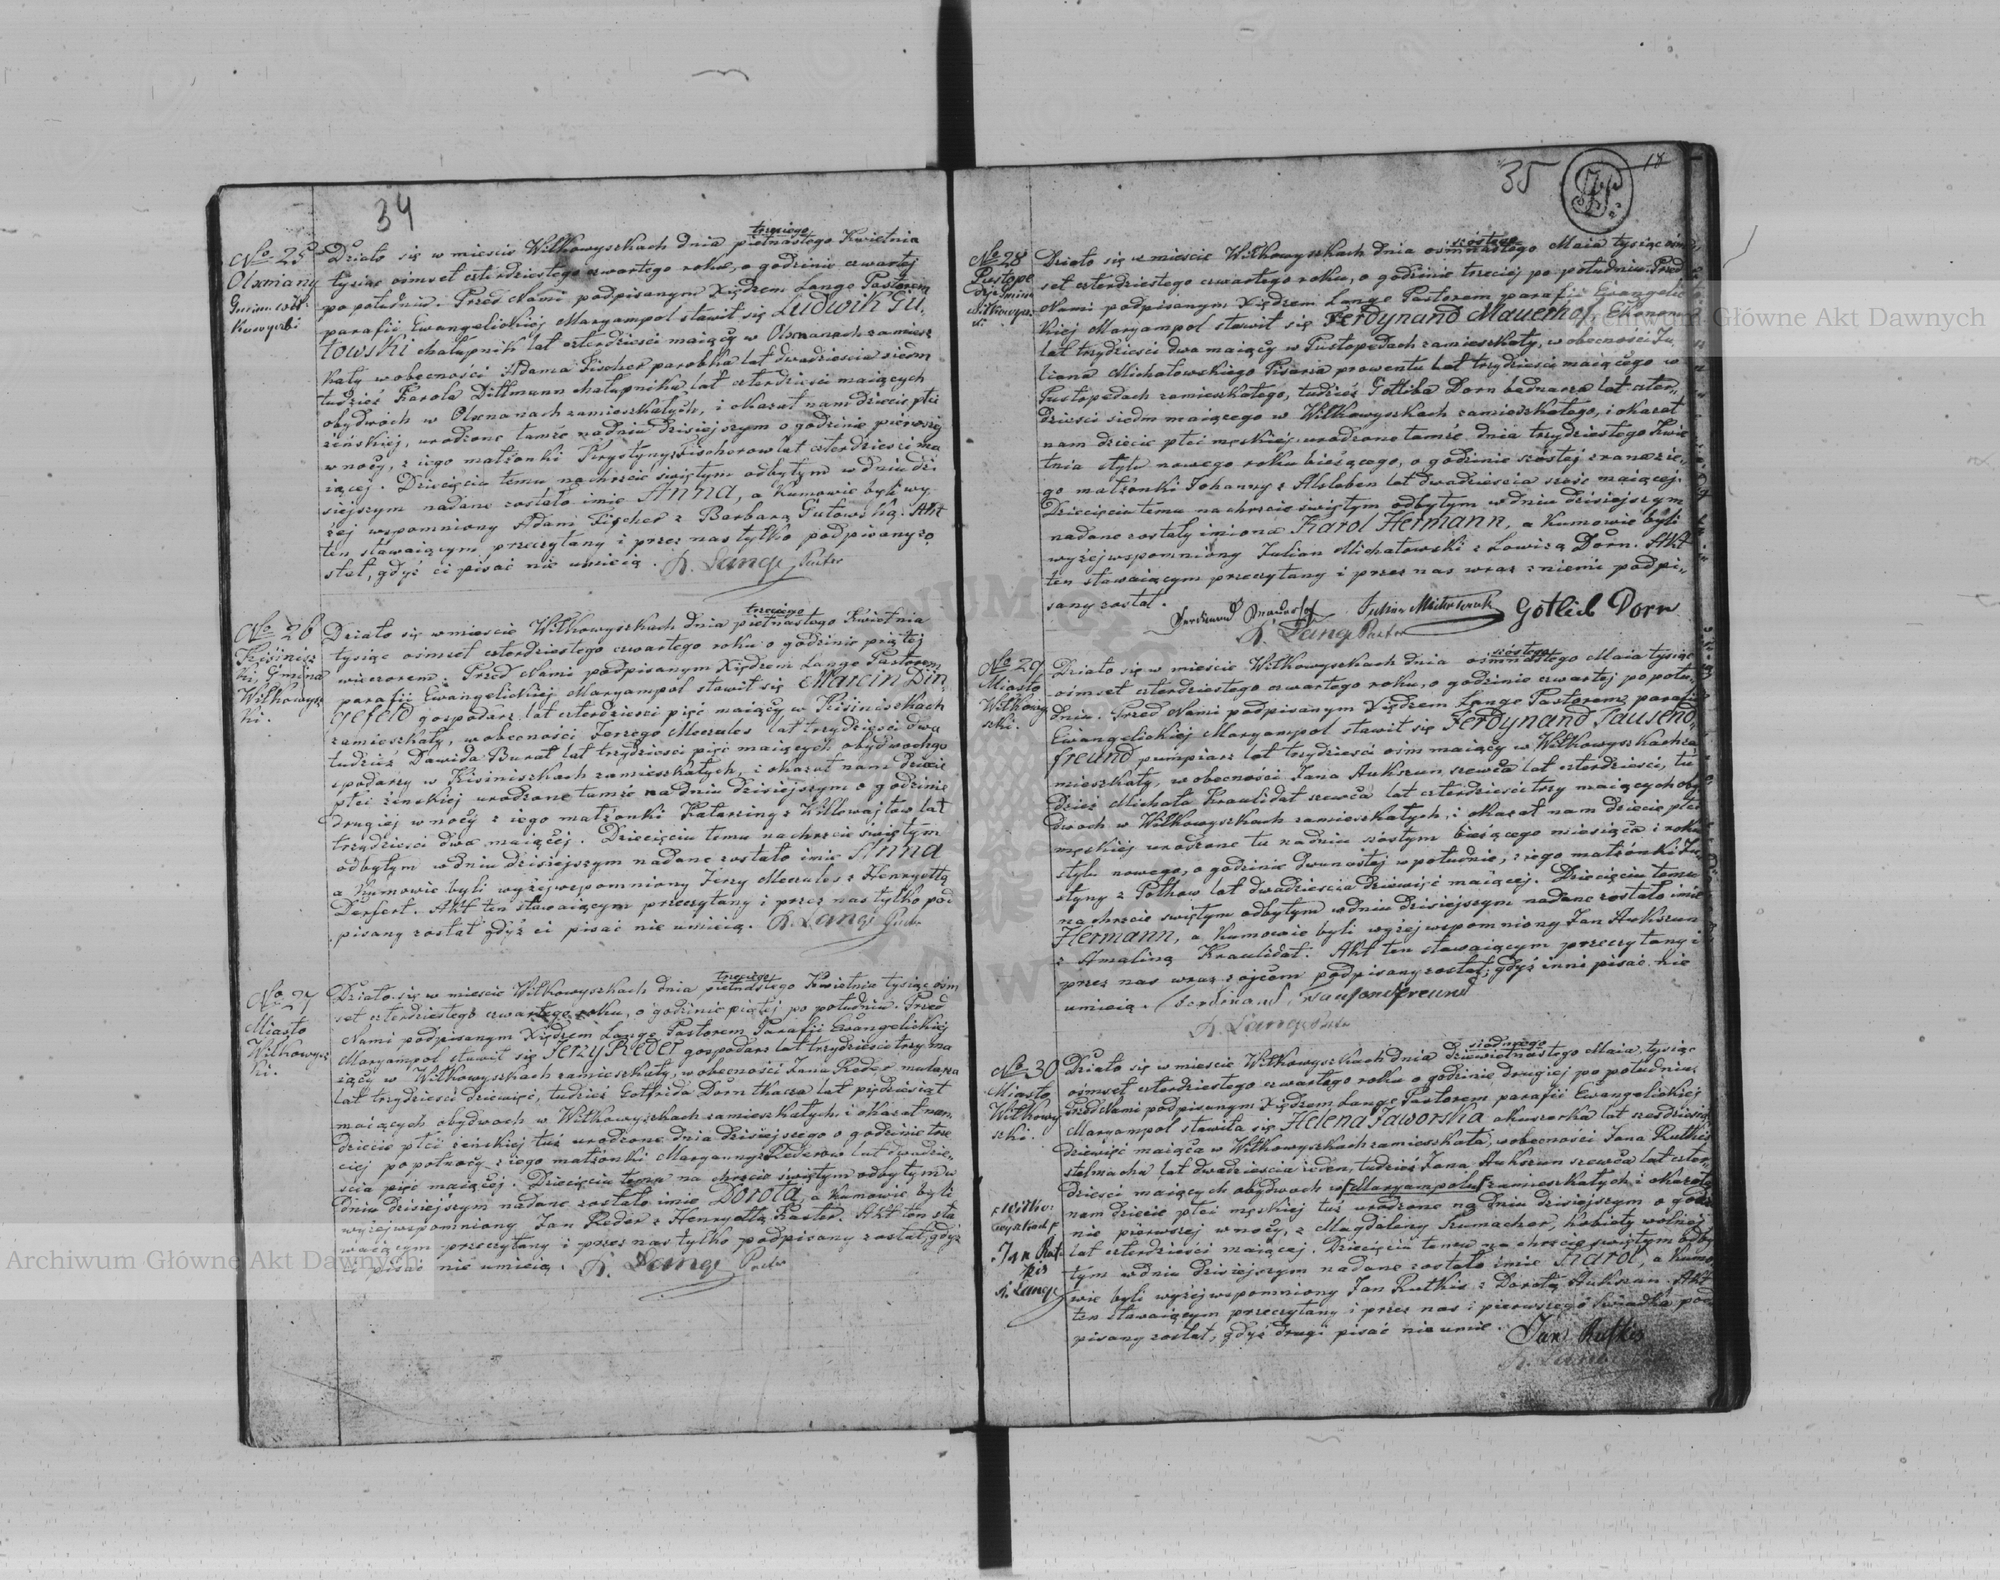 34
No 25
Olxniany
Gminy Wił-
kowyszki
trzeciego
Działo się w mieście Wiłkowyszkach dnia piętnastego Kwietnia
tysiąc ośmset czterdziestego czwartego roku, o godzinie czwartej
po południu. Przed Nami podpisanym Xiędzem Lange Pastorem
parafii Ewangelickiej Maryampol stawił się Ludwik Gu-
towski chałupnik lat czterdzieści maiący w Olxnanach zamiesz-
kały w obecności Adama Fischer parobka lat dwadzieścia siedm
tudzież Karola Dittmann chałupnika lat czterdzieści maiących
obydwóch w Olxnanach zamieszkałych, i okazał nam dziecie płci
żeńskiej, urodzone tamże na dniu dzisiejszym o godzinie pierwszej
w nocy, z iego małżonki Krystyny z Fischerow lat czterdzieści ma
iącej. Dziecięciu temu na chrzcie świętym odbytym w dniu dzi-
siejszym nadane zostało imie Anna, a Kumowie byli wy-
żej wspomniony Adam Fischer z Barbarą Gutowską. Akt
ten stawaiącym przeczytany i przez nas tylko podpisany zo-
stał, gdyż ci pisać nie umieią. R. Lange Pastor
No 26
Kisinisz
ki, Gmina
Wiłkowysz
ki.
trzeciego
Działo się w mieście Wiłkowyszkach dnia piętnastego Kwietnia
tysiąc ośmset czterdziestego czwartego roku o godzinie piątej
wieczorem. Przed Nami podpisanym Xiędzem Lange Pastorem
parafii Ewangelickiej Maryampol stawił się Marcin Din-
gefeld gospodarz lat czterdzieści pięć maiący w Kisiniszkach
zamieszkały, w obecności Jerzego Meczules lat trzydzieści dwa
tudzież Dawida Burat lat trzydzieści pięć maiących obydwóch go
spodarzy w Kisiniszkach zamieszkałych, i okazał nam dziecie
płci żeńskiej urodzone tamże na dniu dzisiejszym o godzinie
drugiej w nocy z iego małżonki Katarzyny z lat
trzydzieści dwa maiącej. Dziecięciu temu na chrzcie świętym
odbytym w dniu dzisiejszym nadane zostało imie Anna
a Kumowie byli wyżej wspomniony Jerzy Meczules z Henryettą
Derfert. Akt ten stawaiącym przeczytany i przez nas tylko pod
pisany został gdyż ci pisać nie umieią. R. Lange Pastor
No 27
Miasto
Wiłkowysz
ki.
trzeciego
Działo się w mieście Wiłkowyszkach dnia piętnastego Kwietnia tysiąc ośm
set czterdziestego czwartego roku, o godzinie piątej po południu. Przed
Nami podpisanym Xiędzem Lange Pastorem Parafii Ewangelickiej
Maryampol stawił się Jerzy Reder gospodarz lat trzydzieści trzy ma
iący w Wiłkowyszkach zamieszkały, w obecności Jana Reder mularza
lat trzydzieści dziewięć, tudzież Gotfrida Dorn tkacza lat pięćdziesiąt
maiących obydwóch w Wiłkowyszkach zamieszkałych i okazał nam
dziecie płci żeńskiej tuż urodzone dnia dzisiejszego o godzinie trze
ciej po północy z iego małżonki Maryanny z Rederow lat dwadzie-
ścia pięć maiącej. Dziecięciu temu na chrzcie świętym odbytym w
dniu dzisiejszym nadane zostało imie Dorota, a Kumowie byli
wyżej wspomniony Jan Reder z Henryettą Raster. Akt ten sta
waiącym przeczytany i przez nas tylko podpisany został, gdyż
ci pisać nie umieią. R. Lange Pastor
35
18
No 28
Pustope
dzie Gmin
Wiłkowysz
ki
szóstego
Działo się w mieście Wiłkowyszkach dnia ośmnastego Maia tysiąc ośm-
set czterdziestego czwartego roku, o godzinie trzeciej po południu. Przed
Nami podpisanym Xiędzem Lange Pastorem parafii Ewangelic-
kiej Maryampol stawił się Ferdynand Mauerhof Ekonom
lat trzydzieści dwa maiący w Pustopedach zamieszkały, w obecności Ju-
liana Michałowskiego Pisarza prowentu lat trzydzieści maiącego w
Pustopedach zamieszkałego, tudzież Gottliba Dorn bednarza lat czter-
dzieści siedm maiącego w Wiłkowyszkach zamieszkałego, i okazał
nam dziecie płci męskiej urodzone tamże dnia trzydziestego Kwie-
tnia stylu nowego roku bieżącego, o godzinie szóstej zrana z ie-
go małżonki Johanny z Alsleben lat dwadzieścia sześć maiącej.
Dziecięciu temu na chrzcie świętym odbytym w dniu dzisiejszym
nadane zostały imiona Karol Hermann, a Kumowie byli
wyżej wspomniony Julian Michałowski z Lowizą Dorn. Akt
ten stawaiącym przeczytany i przez nas wraz z niemi podpi-
sany został.
Ferdinand Mauerhof Julian Michałowski Gotlieb Dorn
R. Lange Pastor
No 29
Miasto
Wiłkowy
szki.
szóstego
Działo się w mieście Wiłkowyszkach dnia ośmnastego Maia tysiąc
ośmset czterdziestego czwartego roku, o godzinie czwartej po połu-
dniu. Przed Nami podpisanym Xiędzem Lange Pastorem parafii
Ewangelickiej Maryampol stawił się Ferdynand Tausend-
freund pumpiarz lat trzydzieści ośm maiący w Wiłkowyszkach za
mieszkały, w obecności Jana Aukszun szewca lat czterdzieści, tu
dzież Michała Kraulidat szewca lat czterdzieści trzy maiących oby
dwóch w Wiłkowyszkach zamieszkałych, i okazał nam dziecie płci
męskiej urodzone tu na dniu szóstym bieżącego miesiąca i roku
stylu nowego, o godzinie dwunastej w południe, z iego małżonki Ju-
styny z Potkow lat dwadzieścia dziewięć maiącej. Dziecięciu temu
na chrzcie świętym odbytym w dniu dzisiejszym nadane zostało imie
Hermann, a Kumowie byli wyżej wspomniony Jan Aukszun
z Amaliną Kraulidat. Akt ten stawaiącym przeczytany i
przez nas wraz z ojcem podpisany został, gdyż inni pisać nie
umieią. Ferdinand Tausendfreund
R. Lange Pastor
No 30
Miasto
Wiłkowy
szki.
siódmego
Działo się w mieście Wiłkowyszkach dnia dziewiętnastego Maia, tysiąc
ośmset czterdziestego czwartego roku o godzinie drugiej po południu
Przed Nami podpisanym Xiędzem Lange Pastorem parafii Ewangelickiej
Maryampol stawiła się Helena Jaworska akuszerka lat sześdziesiąt
dziewięć maiąca w Wiłkowyszkach zamieszkała, w obecności Jana Rutkis
stelmacha lat dwadzieścia ieden, tudzież Jana Aukszun szewca lat czter-
dzieści maiących obydwóch w Maryampolu zamieszkałych i okazała
nam dziecie płci męskiej tuż urodzone na dniu dzisiejszym o godzi
nie pierwszej w nocy, z Magdaleny Szumacher, kobiety wolnej
lat czterdzieści maiącej. Dziecięciu temu na chrzcie świętym odby-
tym w dniu dzisiejszym nadane zostało imie Karol, a Kumo-
wie byli wyżej wspomniony Jan Rutkis z Dorotą Aukszun. Akt
ten stawaiącym przeczytany i przez nas i pierwszego świadka pod
pisany został, gdyż drugi pisać nie umie.
Jan Rutkis
R. Lange
Wiłko-
wyszkach
Jan Rut
kis
R. Lange
Archiwum Główne Akt Dawnych
Archiwum Główne Akt Dawnych